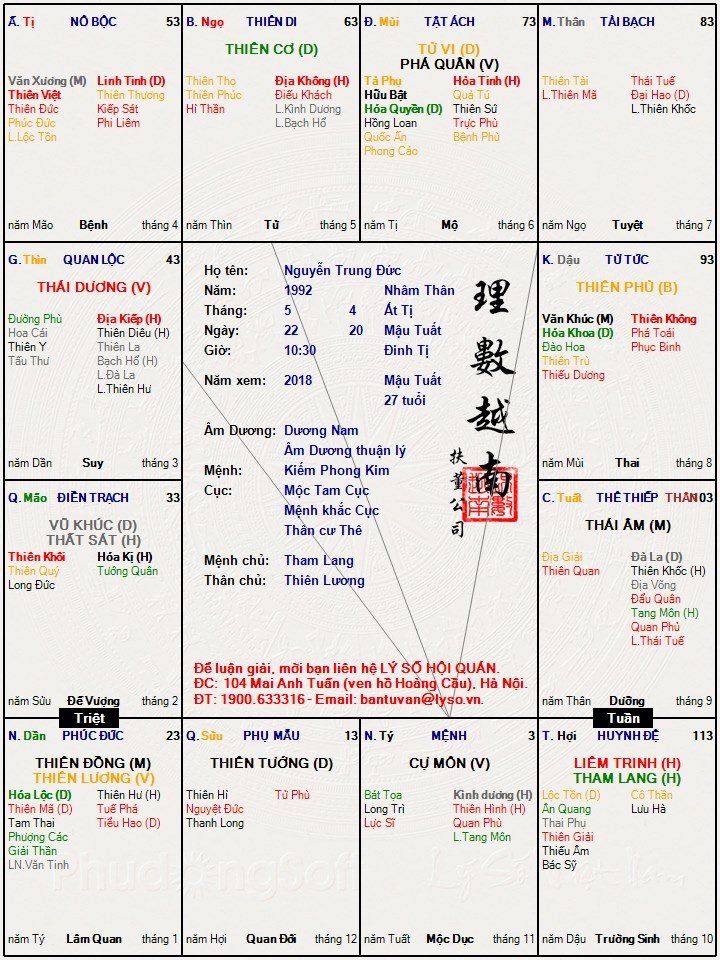 Ấ. Tị NÔ BỘC 53
Văn Xương (M) Linh Tinh (D)
Thiên Việt Thiên Thương
Thiên Đức Kiếp Sát
Phúc Đức Phi Liêm
L.Lộc Tồn
năm Mão Bệnh tháng 4
B. Ngọ THIÊN DI 63
THIÊN CƠ (D)
Thiên Thọ Địa Không (H)
Thiên Phúc Điếu Khách
Hỉ Thần L.Kình Dương
L.Bạch Hổ
năm Thìn Tử tháng 5
Đ. Mùi TẬT ÁCH 73
TỬ VI (D)
PHÁ QUÂN (V)
Tả Phụ Hỏa Tinh (H)
Hữu Bật Quả Tú
Hóa Quyền (D) Thiên Sứ
Hồng Loan Trực Phù
Quốc Ấn Bệnh Phù
Phong Cáo
năm Tị Mộ tháng 6
M. Thân TÀI BẠCH 83
Thiên Tài Thái Tuế
L.Thiên Mã Đại Hao (D)
L.Thiên Khốc
năm Ngọ Tuyệt tháng 7
G. Thìn QUAN LỘC 43
THÁI DƯƠNG (V)
Đường Phù Địa Kiếp (H)
Hoa Cái Thiên Diêu (H)
Thiên Y Thiên La
Tấu Thư Bạch Hổ (H)
L.Đà La
L.Thiên Hư
năm Dần Suy tháng 3
Họ tên: Nguyễn Trung Đức
Năm: 1992 Nhâm Thân
Tháng: 5 4 Ất Tị
Ngày: 22 20 Mậu Tuất
Giờ: 10:30 Đinh Tị
Năm xem: 2018 Mậu Tuất
27 tuổi
Âm Dương: Dương Nam
Âm Dương thuận lý
Mệnh: Kiếm Phong Kim
Cục: Mộc Tam Cục
Mệnh khắc Cục
Thân cư Thê
Mệnh chủ: Tham Lang
Thân chủ: Thiên Lương
理數越南
扶董公司
Để luận giải, mời bạn liên hệ LÝ SỐ HỘI QUÁN.
ĐC: 104 Mai Anh Tuấn (ven hồ Hoàng Cầu), Hà Nội.
ĐT: 1900.633316 - Email: bantuvan@lyso.vn.
K. Dậu TỬ TỨC 93
THIÊN PHỦ (B)
Văn Khúc (M) Thiên Không
Hóa Khoa (D) Phá Toái
Đào Hoa Phục Binh
Thiên Trù
Thiếu Dương
năm Mùi Thai tháng 8
Q. Mão ĐIỀN TRẠCH 33
VŨ KHÚC (D)
THẤT SÁT (H)
Thiên Khôi Hóa Kị (H)
Thiên Quý Tướng Quân
Long Đức
năm Sửu Đế Vượng tháng 2
Triệt
C. Tuất THÊ THIẾP THÂN 103
THÁI ÂM (M)
Địa Giải Đà La (D)
Thiên Quan Thiên Khốc (H)
Địa Võng
Đẩu Quân
Tang Môn (H)
Quan Phủ
L.Thái Tuế
năm Thân Dưỡng tháng 9
Tuần
N. Dần PHÚC ĐỨC 23
THIÊN ĐỒNG (M)
THIÊN LƯƠNG (V)
Hóa Lộc (D) Thiên Hư (H)
Thiên Mã (D) Tuế Phá
Tam Thai Tiểu Hao (D)
Phượng Các
Giải Thần
LN.Văn Tinh
năm Tý Lâm Quan tháng 1
Q. Sửu PHỤ MẪU 13
THIÊN TƯỚNG (D)
Thiên Hỉ Tử Phù
Nguyệt Đức
Thanh Long
năm Hợi Quan Đới tháng 12
N. Tý MỆNH 3
CỰ MÔN (V)
Bát Tọa Kình dương (H)
Long Trì Thiên Hình (H)
Lực Sĩ Quan Phù
L.Tang Môn
năm Tuất Mộc Dục tháng 11
T. Hợi HUYNH ĐỆ 113
LIÊM TRINH (H)
THAM LANG (H)
Lộc Tồn (D) Cô Thần
Ân Quang Lưu Hà
Thai Phụ
Thiên Giải
Thiếu Âm
Bác Sỹ
năm Dậu Trường Sinh tháng 10